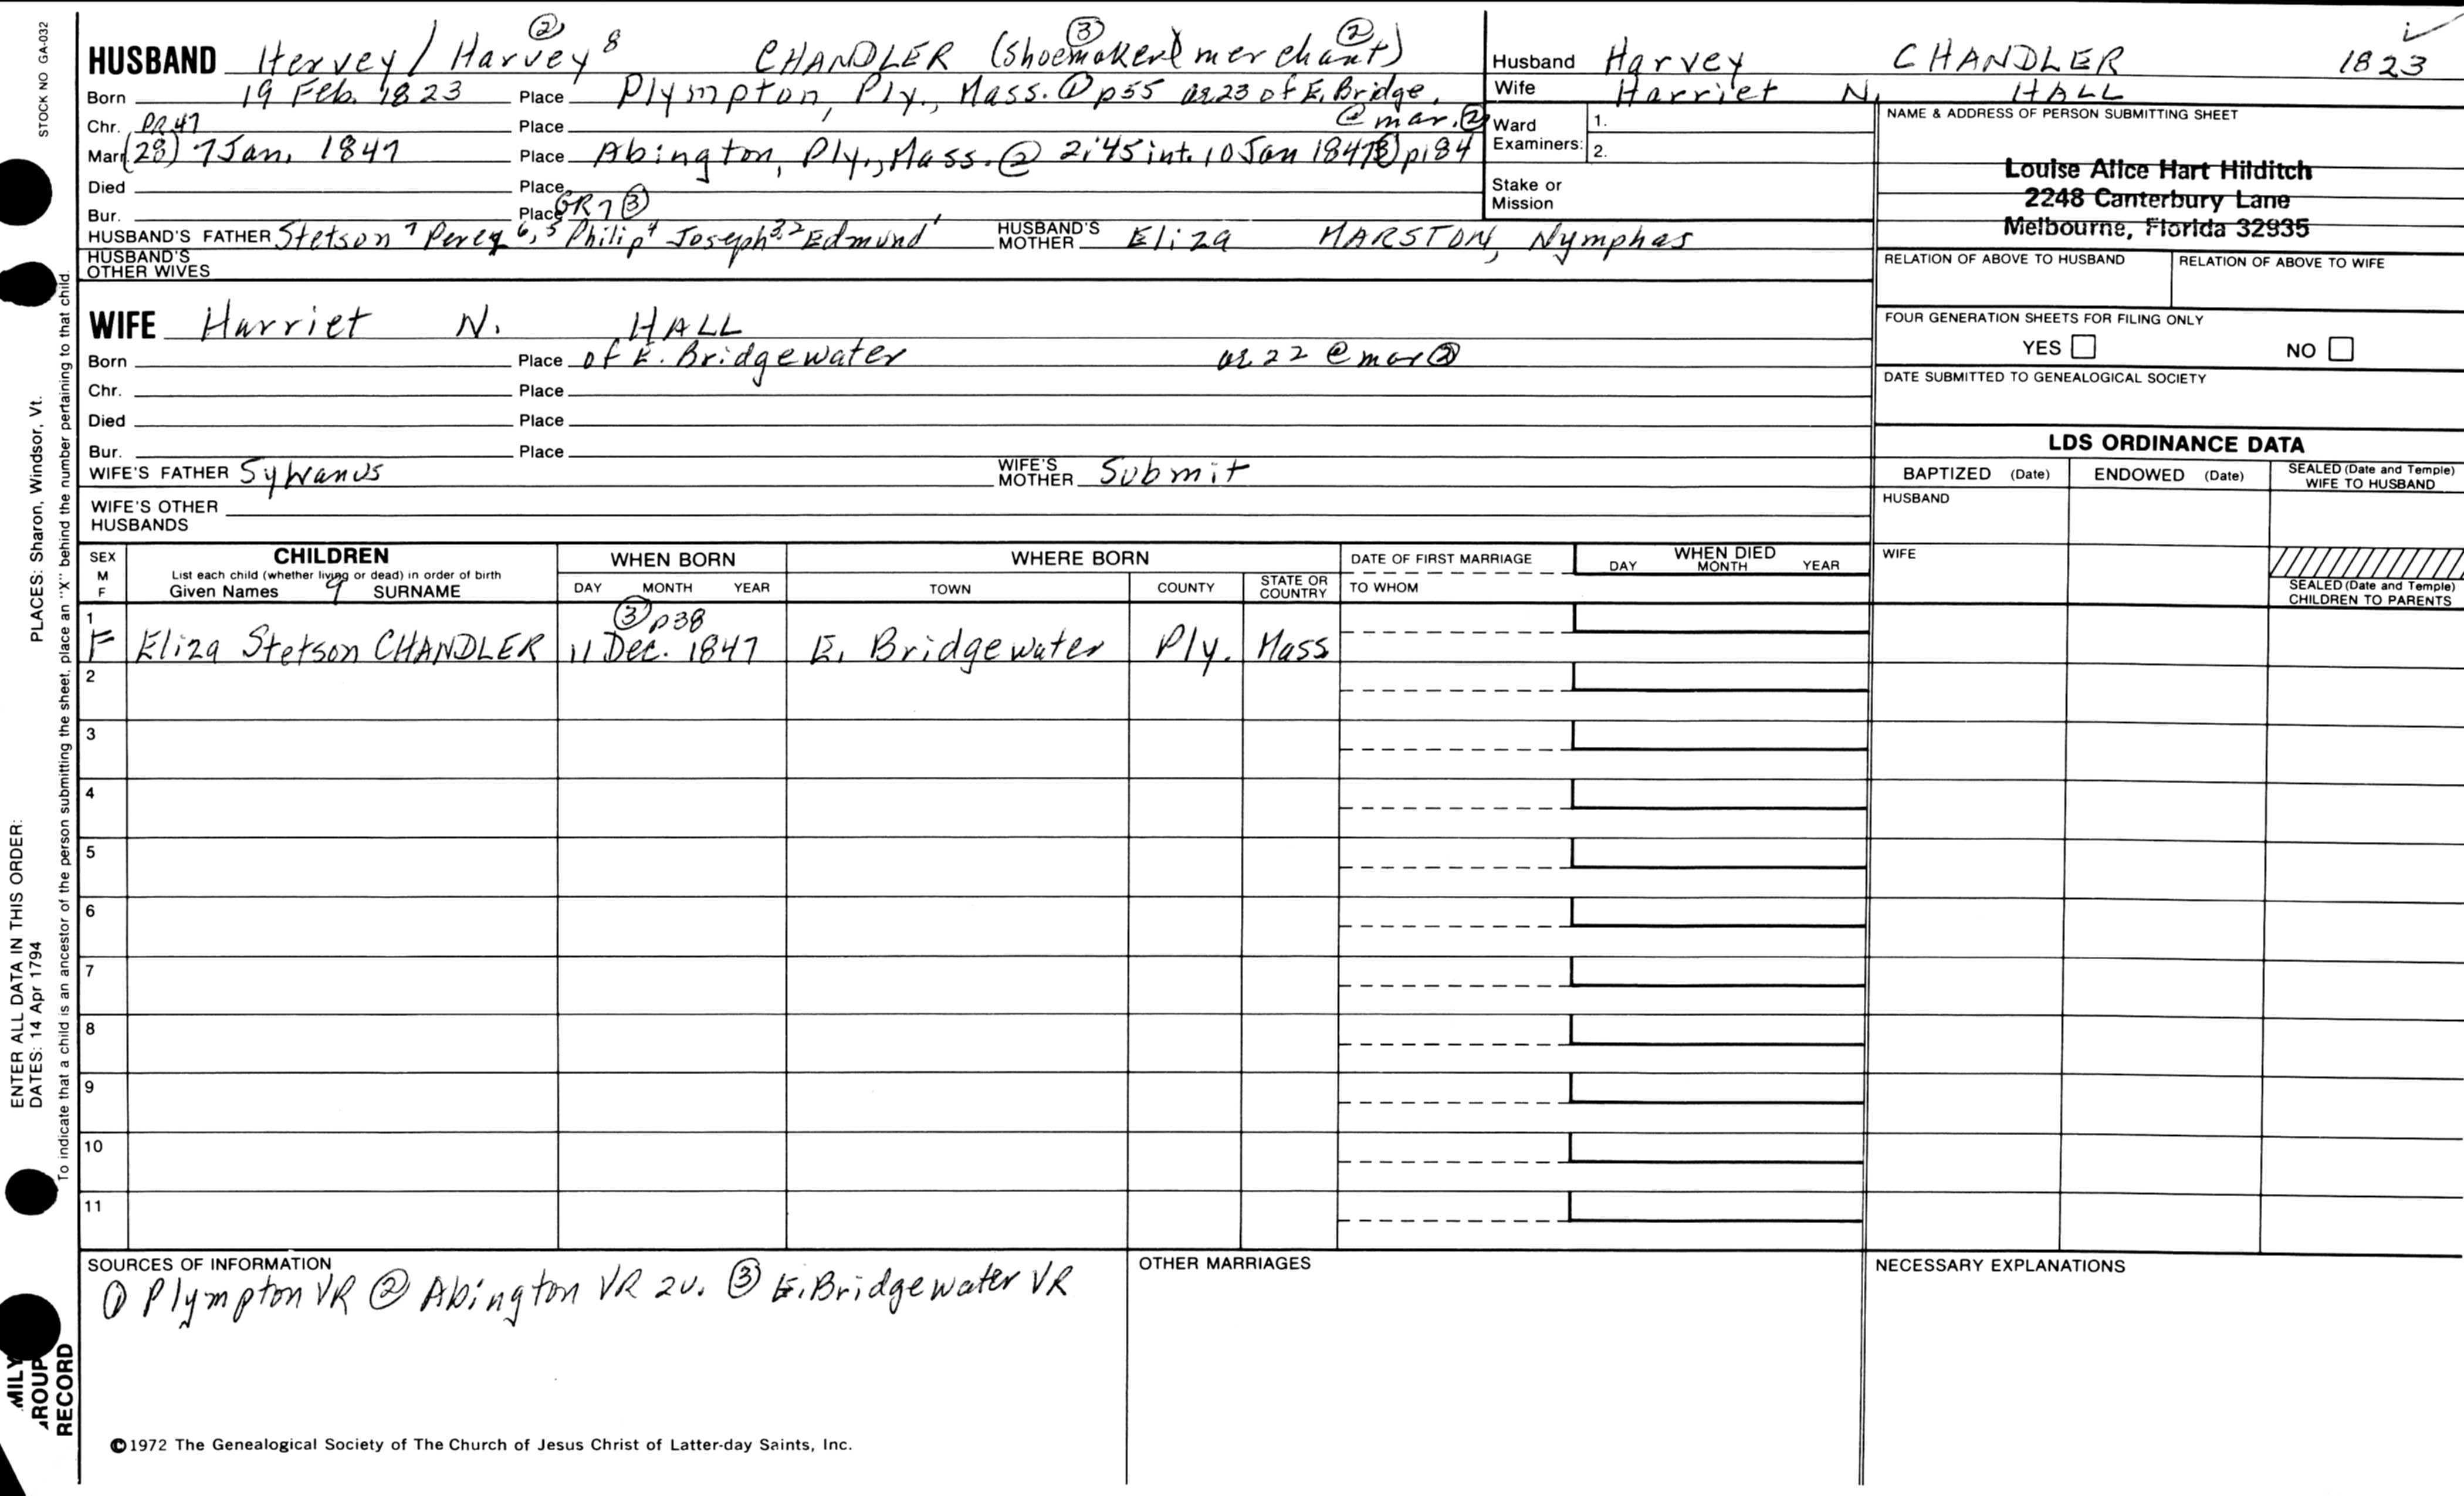 STOCK NO GA-032
PLACES: Sharon, Windsor, Vt.
ENTER ALL DATA IN THIS ORDER:
DATES: 14 Apr 1794
To indicate that a child is an ancestor of the person submitting the sheet, place an "X" behind the number pertaining to that child.
MILY
ROUP
RECORD
② ③ ②
HUSBAND Hervey / Harvey 8 CHANDLER (Shoemaker & merchant)
Born 19 Feb. 1823 Place Plympton, Ply., Mass. ① p55 ae 23 of E. Bridge.
Chr. PR47 Place @ mar. ②
Marr (28) 7 Jan. 1847 Place Abington, Ply., Mass. ② 2:45 int. 10 Jan 1847 ③ p184
Died Place
Bur. Place GR7 ③
HUSBAND'S FATHER Stetson 7 Perez 6,5 Philip 4 Joseph 3,2 Edmund 1 HUSBAND'S MOTHER Eliza MARSTON, Nymphas
HUSBAND'S OTHER WIVES
WIFE Harriet N. HALL
Born Place of E. Bridgewater ae 22 @ mar ②
Chr. Place
Died Place
Bur. Place
WIFE'S FATHER Sylvanus WIFE'S MOTHER Submit
WIFE'S OTHER HUSBANDS
Husband Harvey CHANDLER 1823
Wife Harriet N. HALL
Ward Examiners: 1.
2.
Stake or Mission
NAME & ADDRESS OF PERSON SUBMITTING SHEET
Louise Alice Hart Hilditch
2248 Canterbury Lane
Melbourne, Florida 32935
RELATION OF ABOVE TO HUSBAND RELATION OF ABOVE TO WIFE
FOUR GENERATION SHEETS FOR FILING ONLY
YES NO
DATE SUBMITTED TO GENEALOGICAL SOCIETY
LDS ORDINANCE DATA
BAPTIZED (Date) ENDOWED (Date) SEALED (Date and Temple) WIFE TO HUSBAND
HUSBAND
WIFE
SEALED (Date and Temple) CHILDREN TO PARENTS
SEX M F CHILDREN WHEN BORN WHERE BORN DATE OF FIRST MARRIAGE WHEN DIED
List each child (whether living or dead) in order of birth
Given Names 9 SURNAME DAY MONTH YEAR TOWN COUNTY STATE OR COUNTRY TO WHOM DAY MONTH YEAR
1 ③ p38
F Eliza Stetson CHANDLER 11 Dec. 1847 E. Bridgewater Ply. Mass
2
3
4
5
6
7
8
9
10
11
SOURCES OF INFORMATION
① Plympton VR ② Abington VR 2v. ③ E. Bridgewater VR
OTHER MARRIAGES
NECESSARY EXPLANATIONS
©1972 The Genealogical Society of The Church of Jesus Christ of Latter-day Saints, Inc.